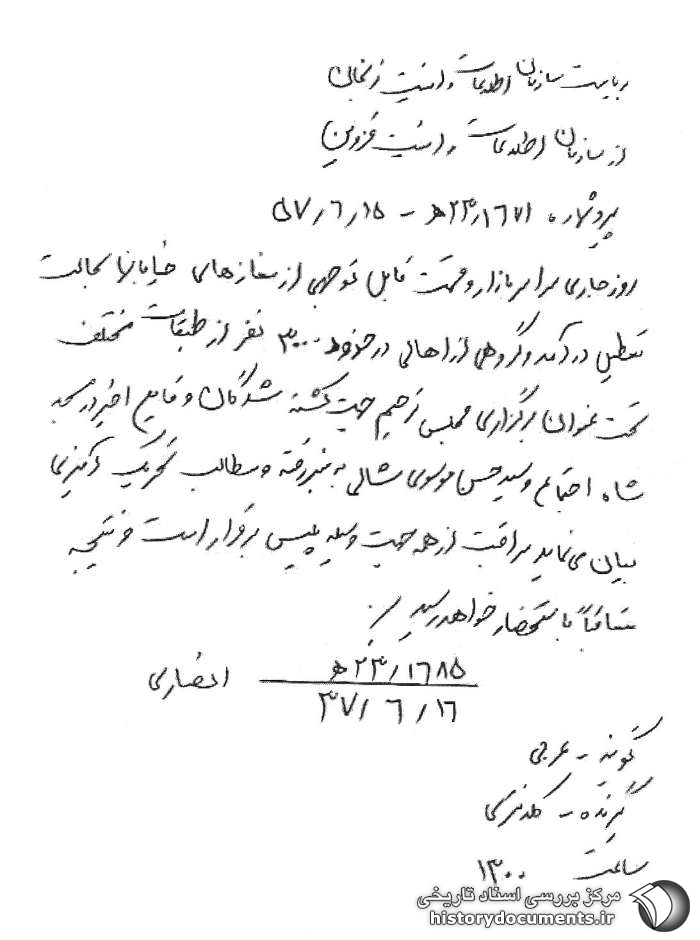 ریاست سازمان اطلاعات و امنیت زنجان
از سازمان اطلاعات و امنیت قزوین
پیرو شماره ۲۳/۱۶۷۱ﻫ – ۵۷/۶/۱۵
روز جاری سراسر بازار و قسمت قابل توجهی از مغازهای خیابانها بحالت
تعطیل درآمد و گروهی از اهالی در حدود ۳۰۰۰ نفر از طبقات مختلف
تحت عنوان برگزاری مجلس ترحیم جهت کشته شدگان وقایع اخیر در مسجد
شاه اجتماع و سید حسن موسوی شالی به منبر رفته و مطالب تحریک آمیزی
بیان می نماید مراقبت از هر جهت وسیله پلیس برقرار است و نتیجه
متعاقباً باستحضار خواهد رسید
۲۳/۱۶۸۵ﻫ
۳۷/۶/۱۶
انصاری
گوینده –
گیرنده –
ساعت ۱۳۰۰
مرکز بررسی اسناد تاریخی
historydocuments.ir